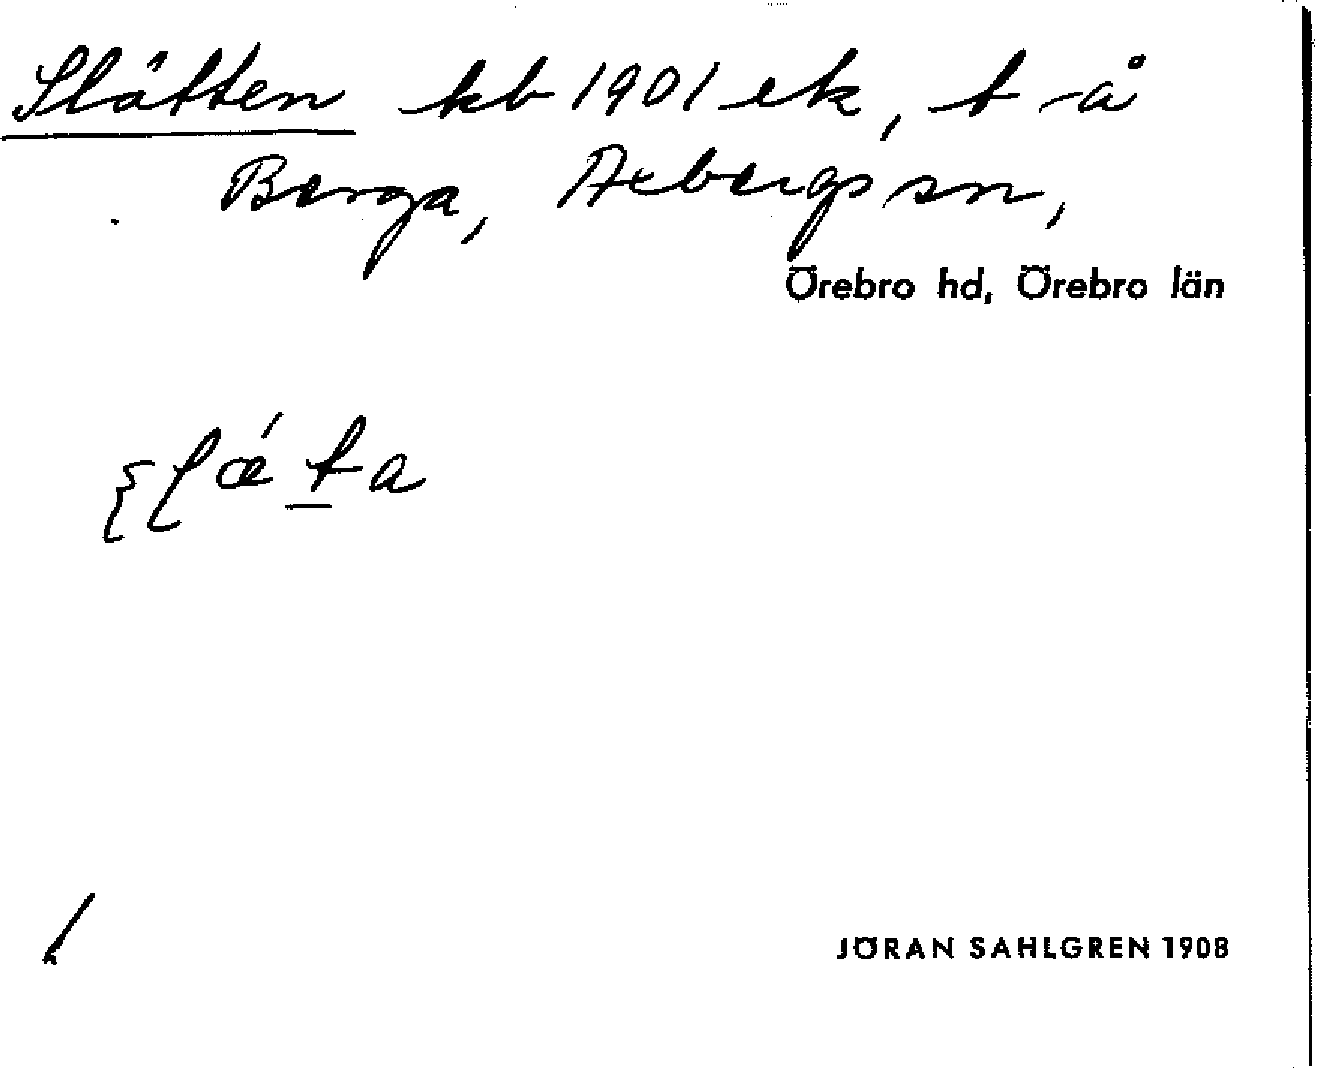 Slätten kb 1901 ek, t å
Berga, Axbergs sn,
Örebro hd, Örebro län
JÖRAN SAHLGREN 1908